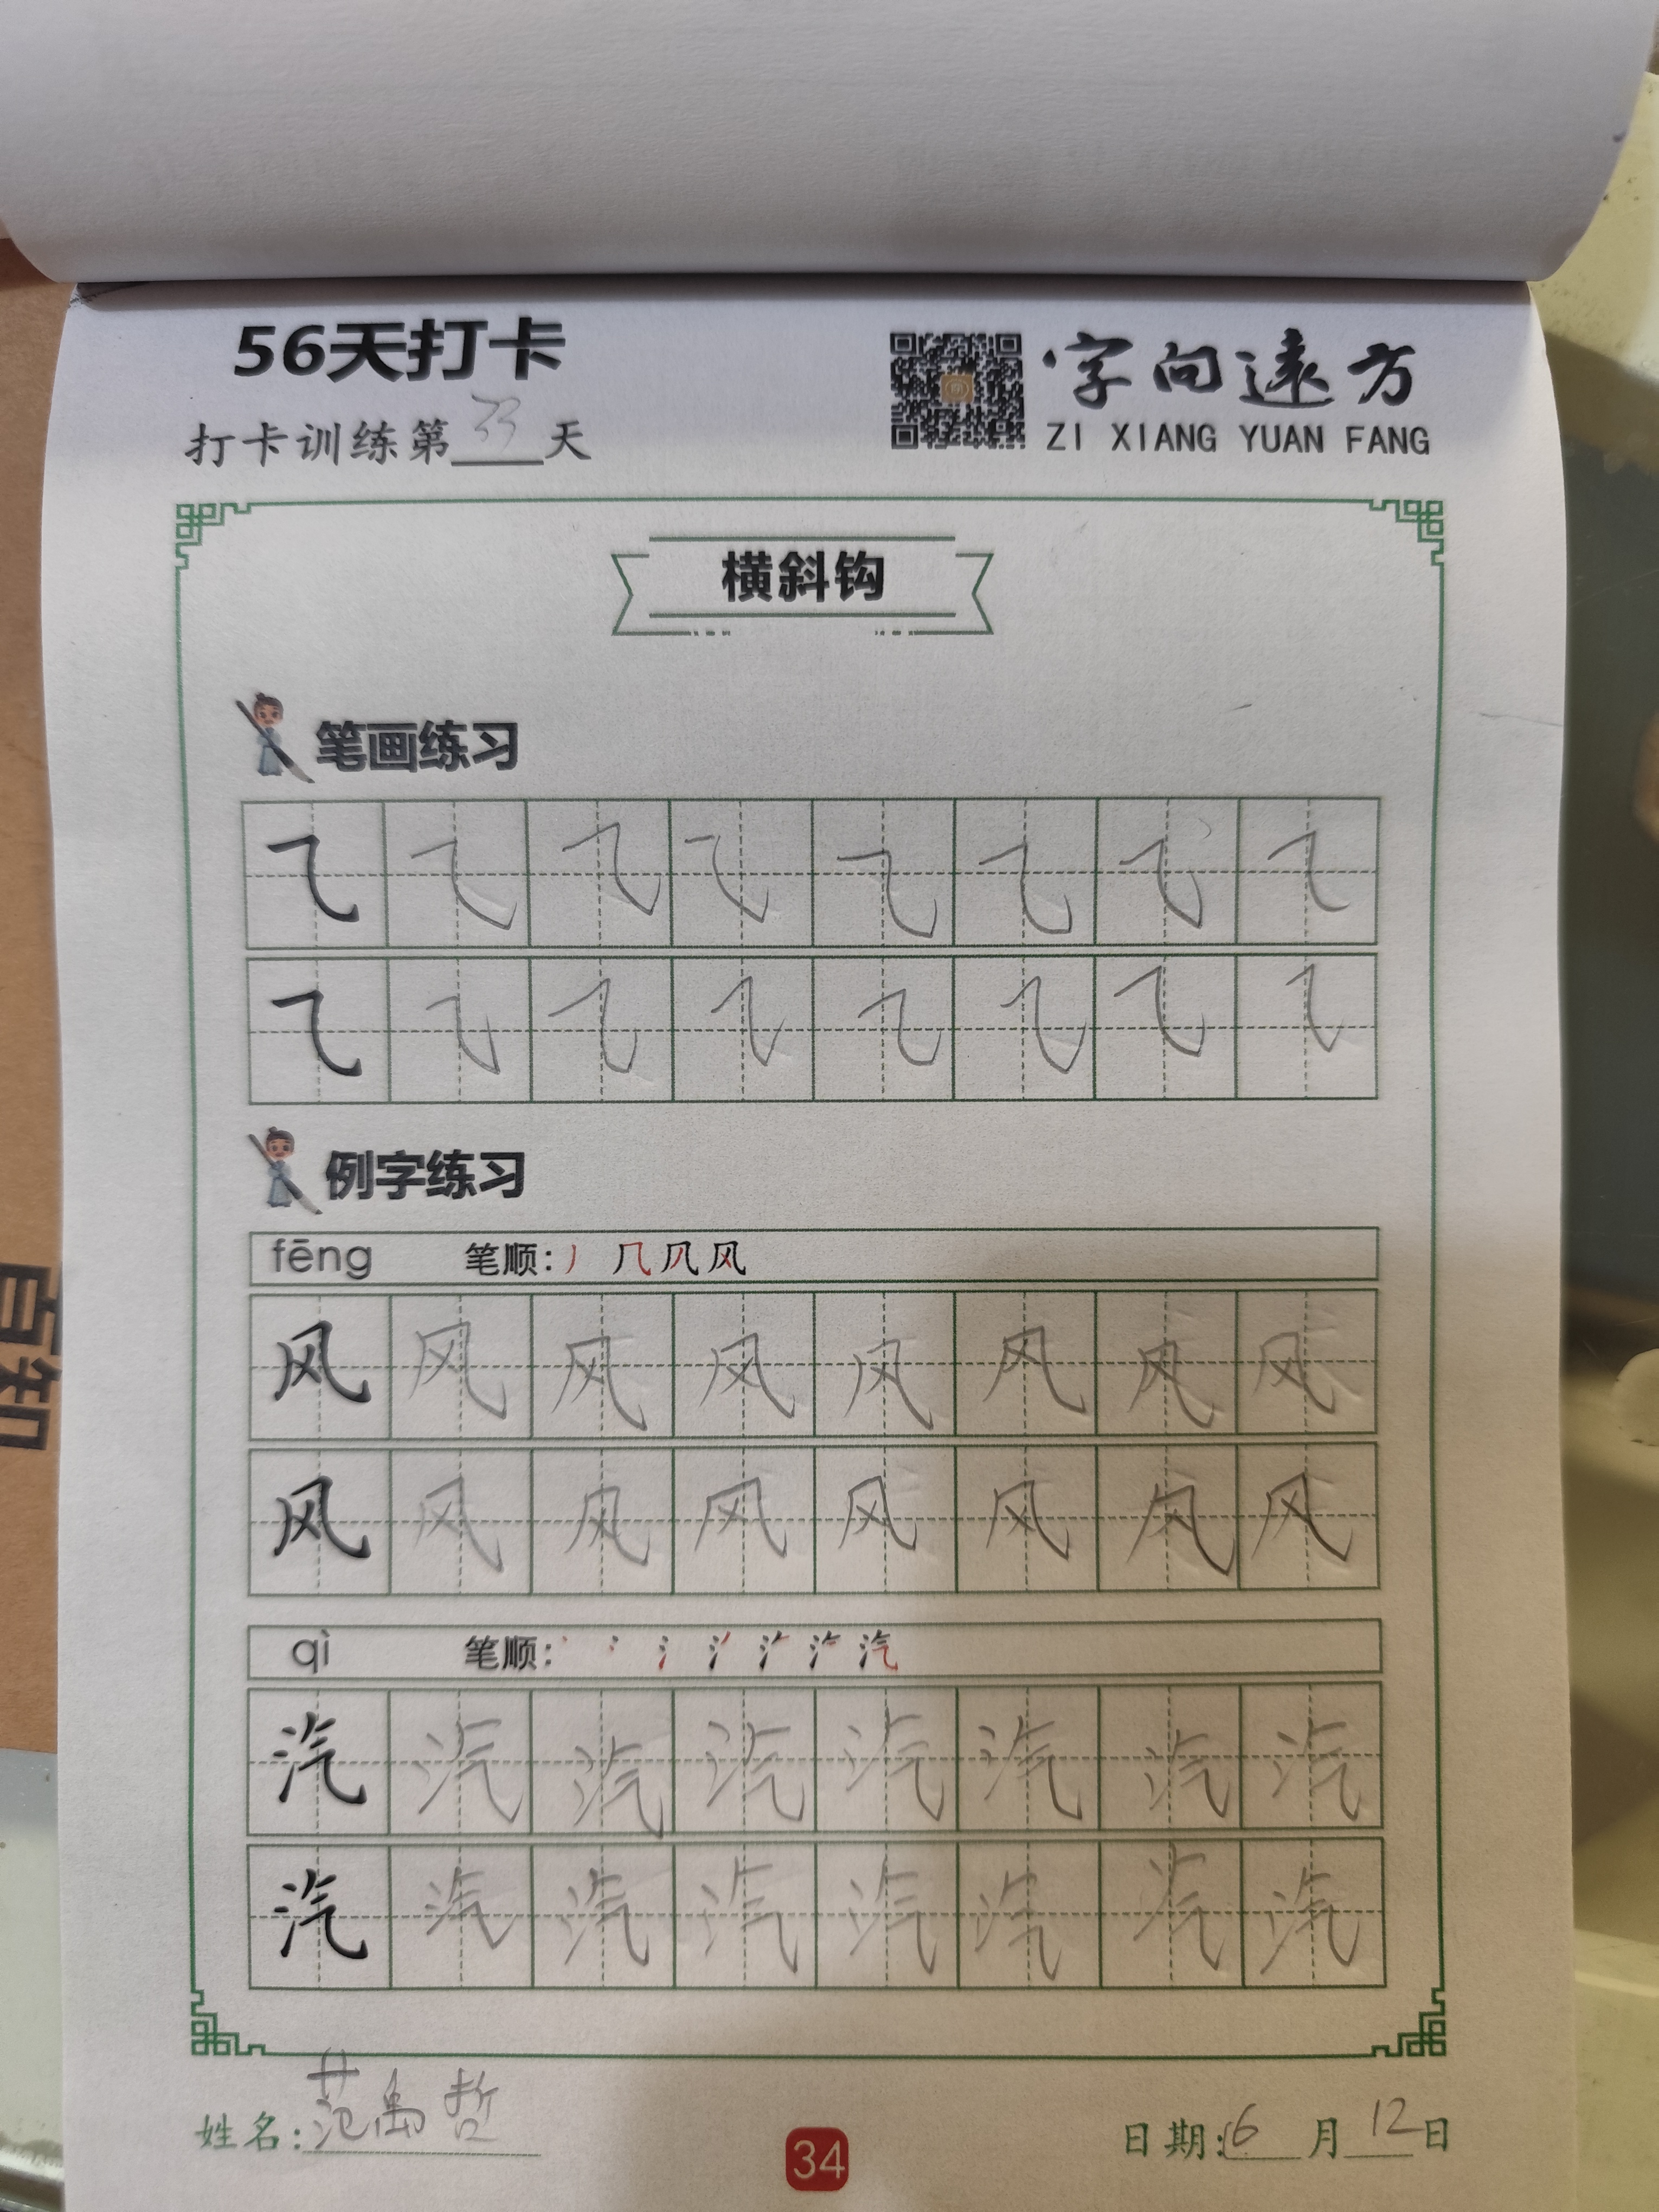 56天打卡
字向遠方
打卡训练第33天
ZI XIANG YUAN FANG
横斜钩
笔画练习
㇈ ㇈ ㇈ ㇈ ㇈ ㇈ ㇈ ㇈
㇈ ㇈ ㇈ ㇈ ㇈ ㇈ ㇈ ㇈
例字练习
fēng 笔顺: 丿 几 风
风 风 风 风 风 风 风 风
风 风 风 风 风 风 风 风
qì 笔顺: 丶 冫 氵 汽
汽 汽 汽 汽 汽 汽 汽 汽
汽 汽 汽 汽 汽 汽 汽 汽
姓名:范禹哲
34
日期:6月12日